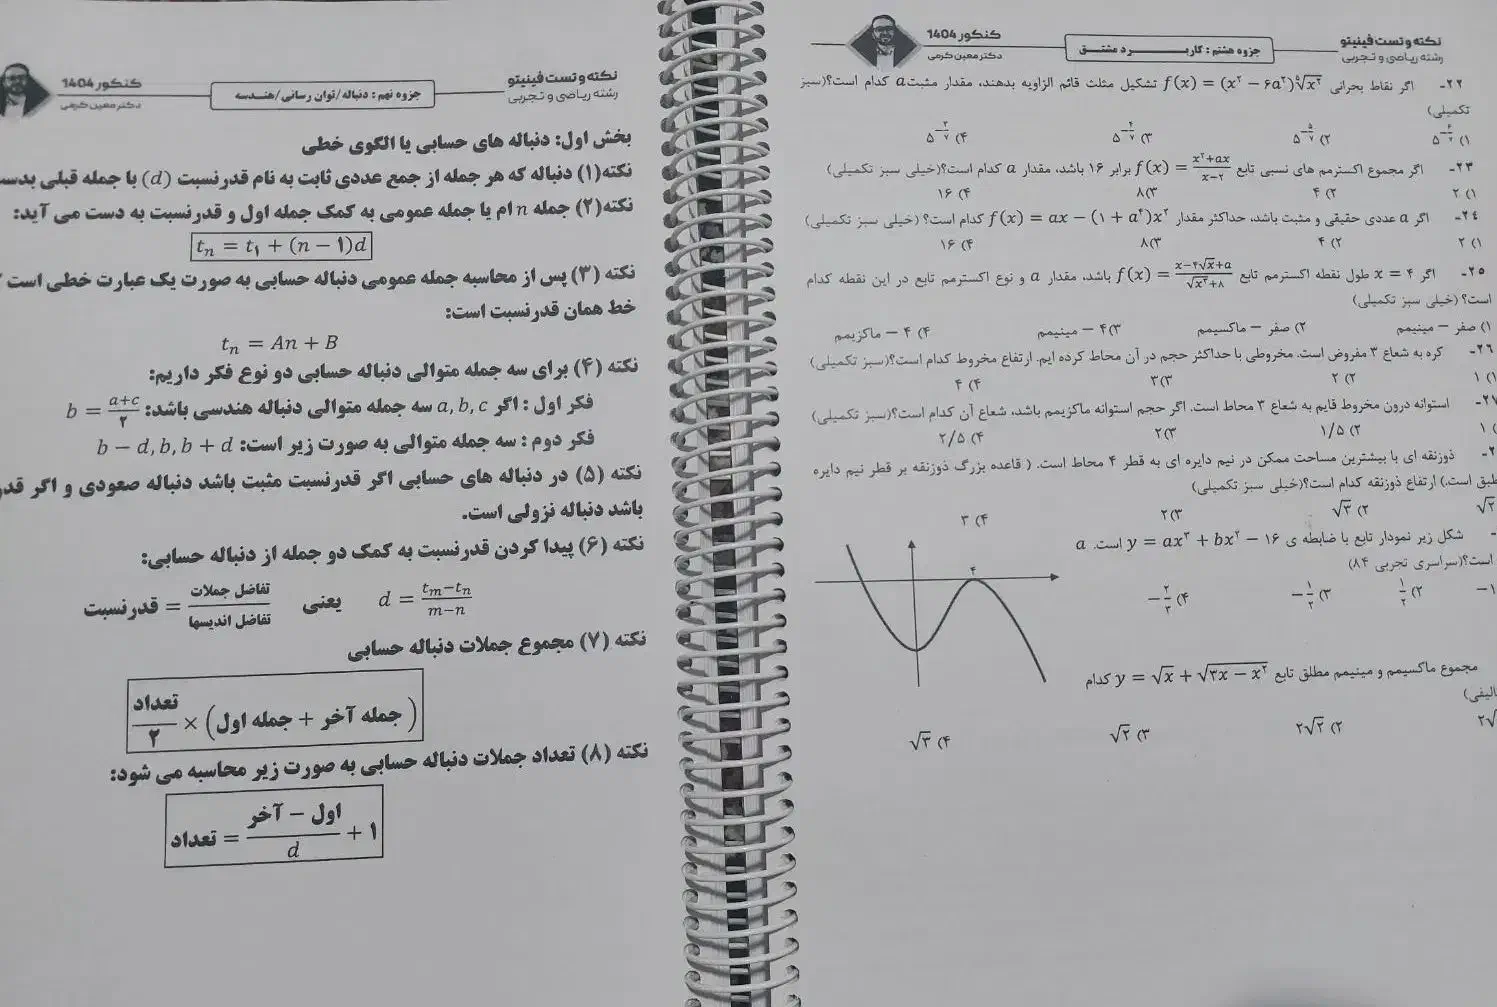 نکته و تست فینیتو
رشته ریاضی و تجربی
جزوه هشتم : کاربرد مشتق
کنکور 1404
دکتر معین کرمی
۲۲- اگر نقاط بحرانی f(x) = (x² − ۶a²)⁵√x² تشکیل مثلث قائم الزاویه بدهند، مقدار مثبت a کدام است؟(سبز
تکمیلی)
۱) ۵^(−۶/۷) ۲) ۵^(−۵/۷) ۳) ۵^(−۴/۷) ۴) ۵^(−۳/۷)
۲۳- اگر مجموع اکسترمم های نسبی تابع f(x) = (x²+ax)/(x−۲) برابر ۱۶ باشد، مقدار a کدام است؟(خیلی سبز تکمیلی)
۱) ۲ ۲) ۴ ۳) ۸ ۴) ۱۶
۲۴- اگر a عددی حقیقی و مثبت باشد، حداکثر مقدار f(x) = ax − (۱ + a⁴)x² کدام است؟ (خیلی سبز تکمیلی)
۱) ۲ ۲) ۴ ۳) ۸ ۴) ۱۶
۲۵- اگر x = ۴ طول نقطه اکسترمم تابع f(x) = (x−۴√x+a)/√(x³+۸) باشد، مقدار a و نوع اکسترمم تابع در این نقطه کدام
است؟ (خیلی سبز تکمیلی)
۱) صفر – مینیمم ۲) صفر – ماکسیمم ۳) ۴ – مینیمم ۴) ۴ – ماکزیمم
۲۶- کره به شعاع ۳ مفروض است. مخروطی با حداکثر حجم در آن محاط کرده ایم. ارتفاع مخروط کدام است؟(سبز تکمیلی)
۱) ۱ ۲) ۲ ۳) ۳ ۴) ۴
استوانه درون مخروط قایم به شعاع ۳ محاط است. اگر حجم استوانه ماکزیمم باشد، شعاع آن کدام است؟(سبز تکمیلی)
۱ ۲) ۱/۵ ۳) ۲ ۴) ۲/۵
ذوزنقه ای با بیشترین مساحت ممکن در نیم دایره ای به قطر ۴ محاط است. ( قاعده بزرگ ذوزنقه بر قطر نیم دایره
است.) ارتفاع ذوزنقه کدام است؟(خیلی سبز تکمیلی)
√۲ ۲) √۳ ۳) ۲ ۴) ۳
شکل زیر نمودار تابع با ضابطه ی y = ax³ + bx² − ۱۶ است. a
است؟(سراسری تجربی ۸۴)
−۱ ۲) ۱/۲ ۳) −۱/۲ ۴) −۲/۳
۴
مجموع ماکسیمم و مینیمم مطلق تابع y = √x + √(۳x − x²) کدام
۲) ۲√۲ ۳) √۲ ۴) √۳
نکته و تست فینیتو
رشته ریاضی و تجربی
جزوه نهم : دنباله/توان رسانی/هندسه
کنکور 1404
دکتر معین کرمی
بخش اول: دنباله های حسابی یا الگوی خطی
نکته(۱) دنباله که هر جمله از جمع عددی ثابت به نام قدرنسبت (d) با جمله قبلی
نکته(۲) جمله n ام یا جمله عمومی به کمک جمله اول و قدرنسبت به دست می آید:
tₙ = t₁ + (n − ۱)d
نکته (۳) پس از محاسبه جمله عمومی دنباله حسابی به صورت یک عبارت خطی است
خط همان قدرنسبت است:
tₙ = An + B
نکته (۴) برای سه جمله متوالی دنباله حسابی دو نوع فکر داریم:
فکر اول : اگر a, b, c سه جمله متوالی دنباله هندسی باشد: b = (a+c)/۲
فکر دوم : سه جمله متوالی به صورت زیر است: b − d, b, b + d
نکته (۵) در دنباله های حسابی اگر قدرنسبت مثبت باشد دنباله صعودی و اگر
باشد دنباله نزولی است.
نکته (۶) پیدا کردن قدرنسبت به کمک دو جمله از دنباله حسابی:
d = (tₘ−tₙ)/(m−n) یعنی تفاضل جملات/تفاضل اندیسها = قدرنسبت
نکته (۷) مجموع جملات دنباله حسابی
تعداد/۲ × (جمله آخر + جمله اول)
نکته (۸) تعداد جملات دنباله حسابی به صورت زیر محاسبه می شود:
تعداد = (اول − آخر)/d + ۱